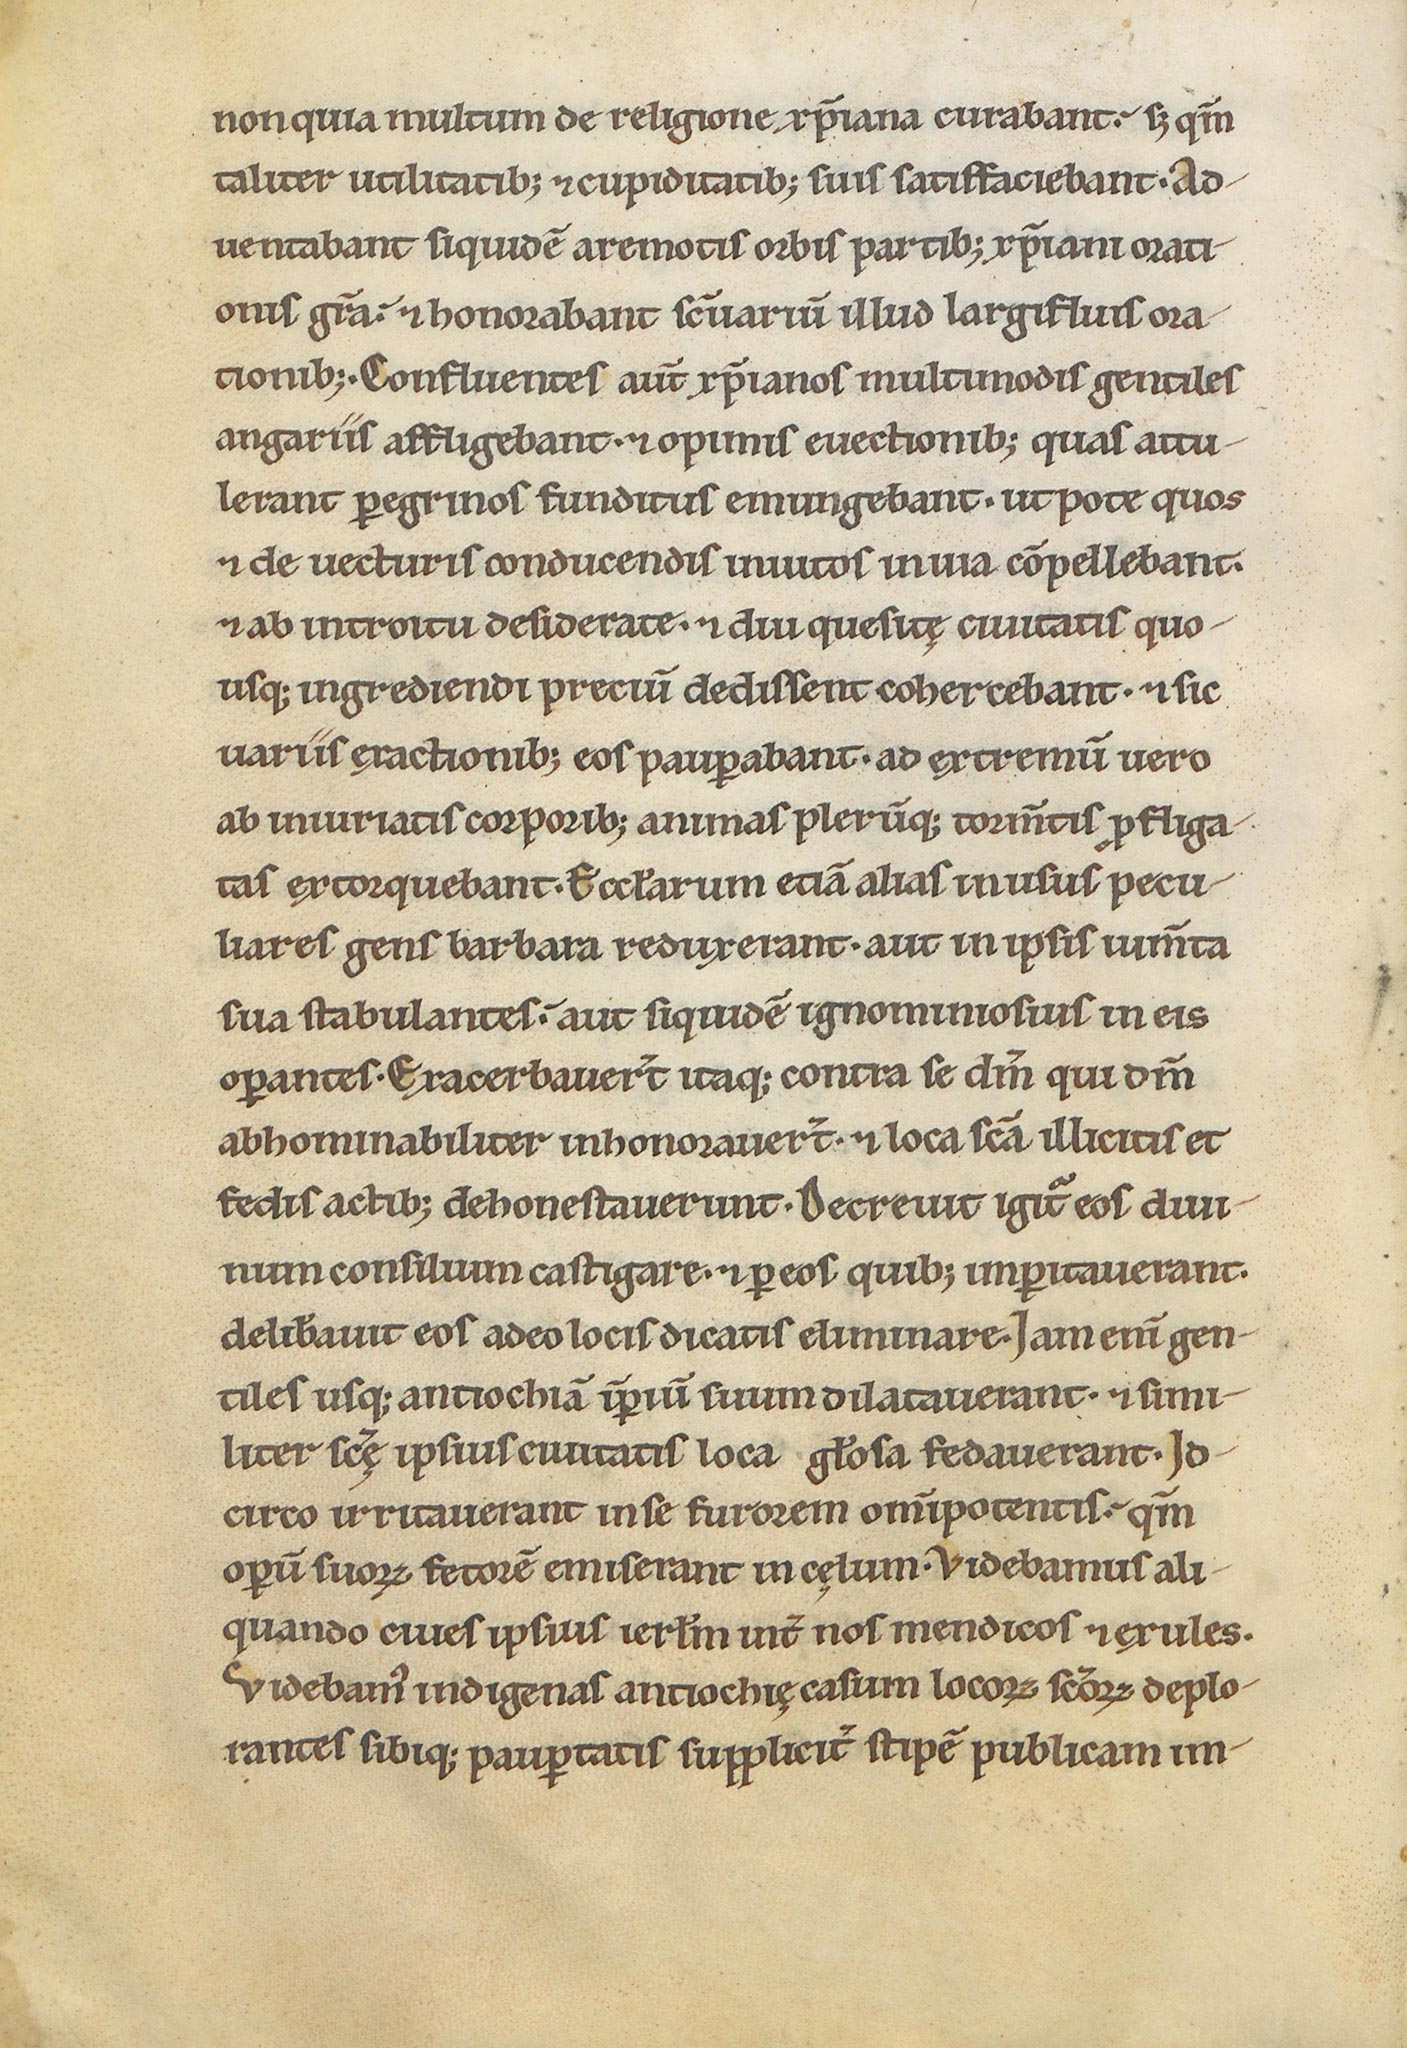 non quia multum de religione xp̄iana curabant. sꝫ qm̄
taliter utilitatibꝫ ⁊ cupiditatibꝫ suis satisfaciebant. Ad-
uentabant siquidē a remotis orbis partibꝫ xp̄iani orati-
onis gr̄a. ⁊ honorabant sc̄uariū illud largifluis ora-
tionibꝫ. Confluentes aut̄ xp̄ianos multimodis gentiles
angariis affligebant. ⁊ opimis euectionibꝫ quas attu-
lerant ꝑegrinos funditus emungebant. ut pote quos
⁊ de uecturis conducendis inuitos in uia cōpellebant.
⁊ ab introitu desiderate. ⁊ diu quesitę ciuitatis quo-
usqꝫ ingrediendi preciū dedissent cohercebant. ⁊ sic
uariis ęxactionibꝫ eos pauꝑabant. ad ęxtremū uero
ab iniuriatis corporibꝫ animas plerūqꝫ torm̄tis ꝓfliga-
tas ęxtorquebant. Eccl̄arum etiā alias in usus pecu-
liares gens barbara reduxerant. aut in ipsis ium̄ta
sua stabulantes. aut siquidē ignominiosius in eis
oꝑantes. Exacerbauer̄t itaqꝫ contra se dm̄ qui dm̄
abhominabiliter inhonorauer̄t. ⁊ loca sc̄a illicitis et
fedis actibꝫ dehonestauerunt. Decreuit igit᷑ eos diui-
num consilium castigare. ⁊ ꝑ eos quibꝫ imꝑitauerant.
delib̄auit eos adeo locis dicatis eliminare. Jam enī gen-
tiles usqꝫ antiochiā īꝑiū suum dilatauerant. ⁊ simi-
liter sc̄ę ipsius ciuitatis loca gl̄osa fedauerant. Jd-
circo irritauerant in se furorem om̄ipotentis. qm̄
oꝑū suoꝝ fetorē emiserant in cęlum. Videbamus ali-
quando ciues ipsius ierl̄m int̄ nos mendicos ⁊ ęxules.
Videbamꝰ indigenas antiochię casum locoꝝ sc̄oꝝ deplo-
rantes sibiqꝫ pauꝑtatis supplicit̄ stipē publicam im-